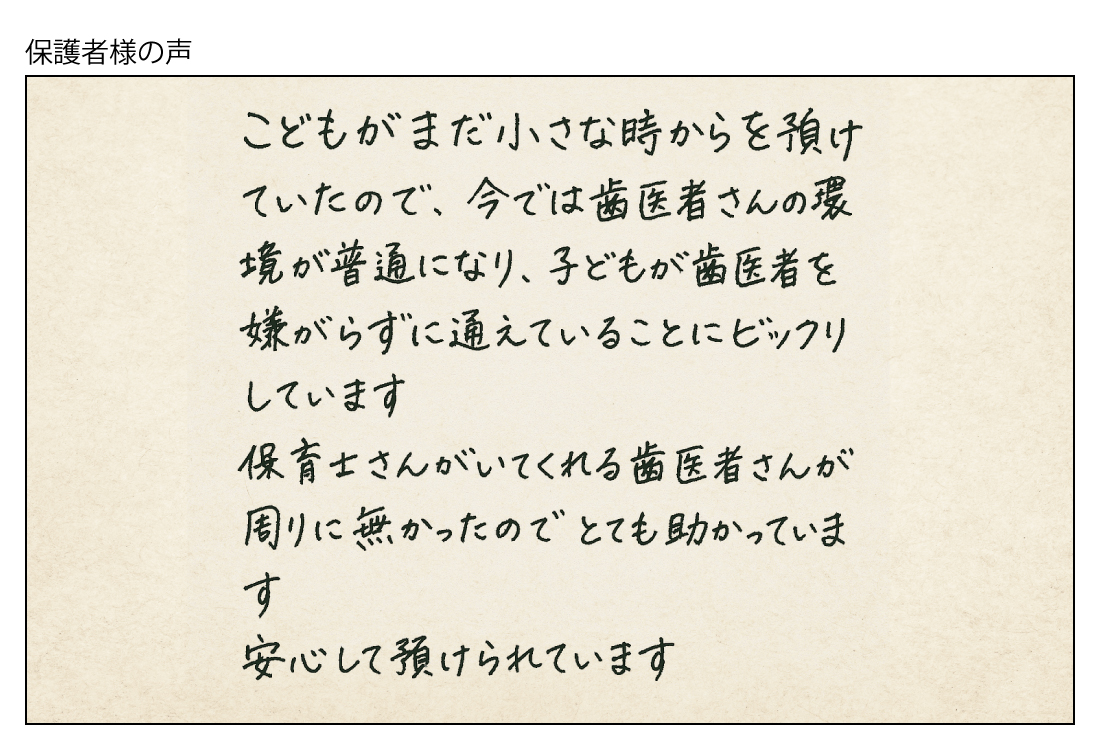 保護者様の声
こどもがまだ小さな時からを預け
ていたので、今では歯医者さんの環
境が普通になり、子どもが歯医者を
嫌がらずに通えていることにビックリ
しています
保育士さんがいてくれる歯医者さんが
周りに無かったのでとても助かっていま
す
安心して預けられています